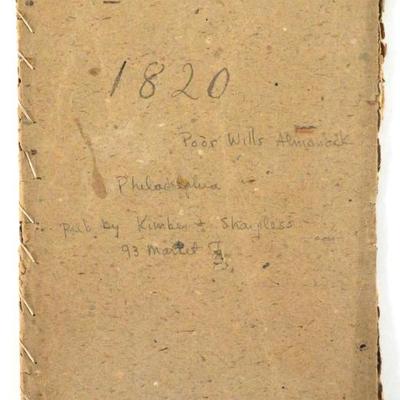 1820
Poor Wills Almanack
Philadelphia
pub by Kimber & Sharpless
93 Market St